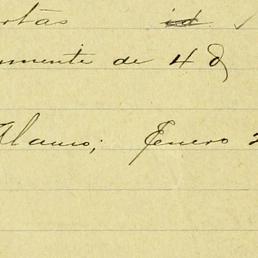 rtas id
mente de 48
Alamo; Enero 2